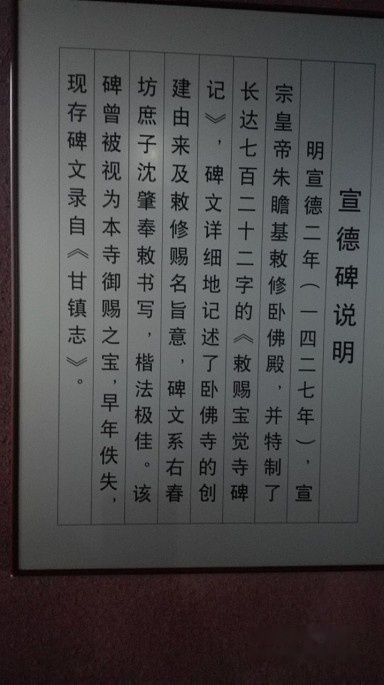 宣德碑说明
明宣德二年（一四二七年），宣
宗皇帝朱瞻基敕修卧佛殿，并特制了
长达七百二十二字的《敕赐宝觉寺碑
记》，碑文详细地记述了卧佛寺的创
建由来及敕修赐名旨意，碑文系右春
坊庶子沈肇奉敕书写，楷法极佳。该
碑曾被视为本寺御赐之宝，早年佚失，
现存碑文录自《甘镇志》。